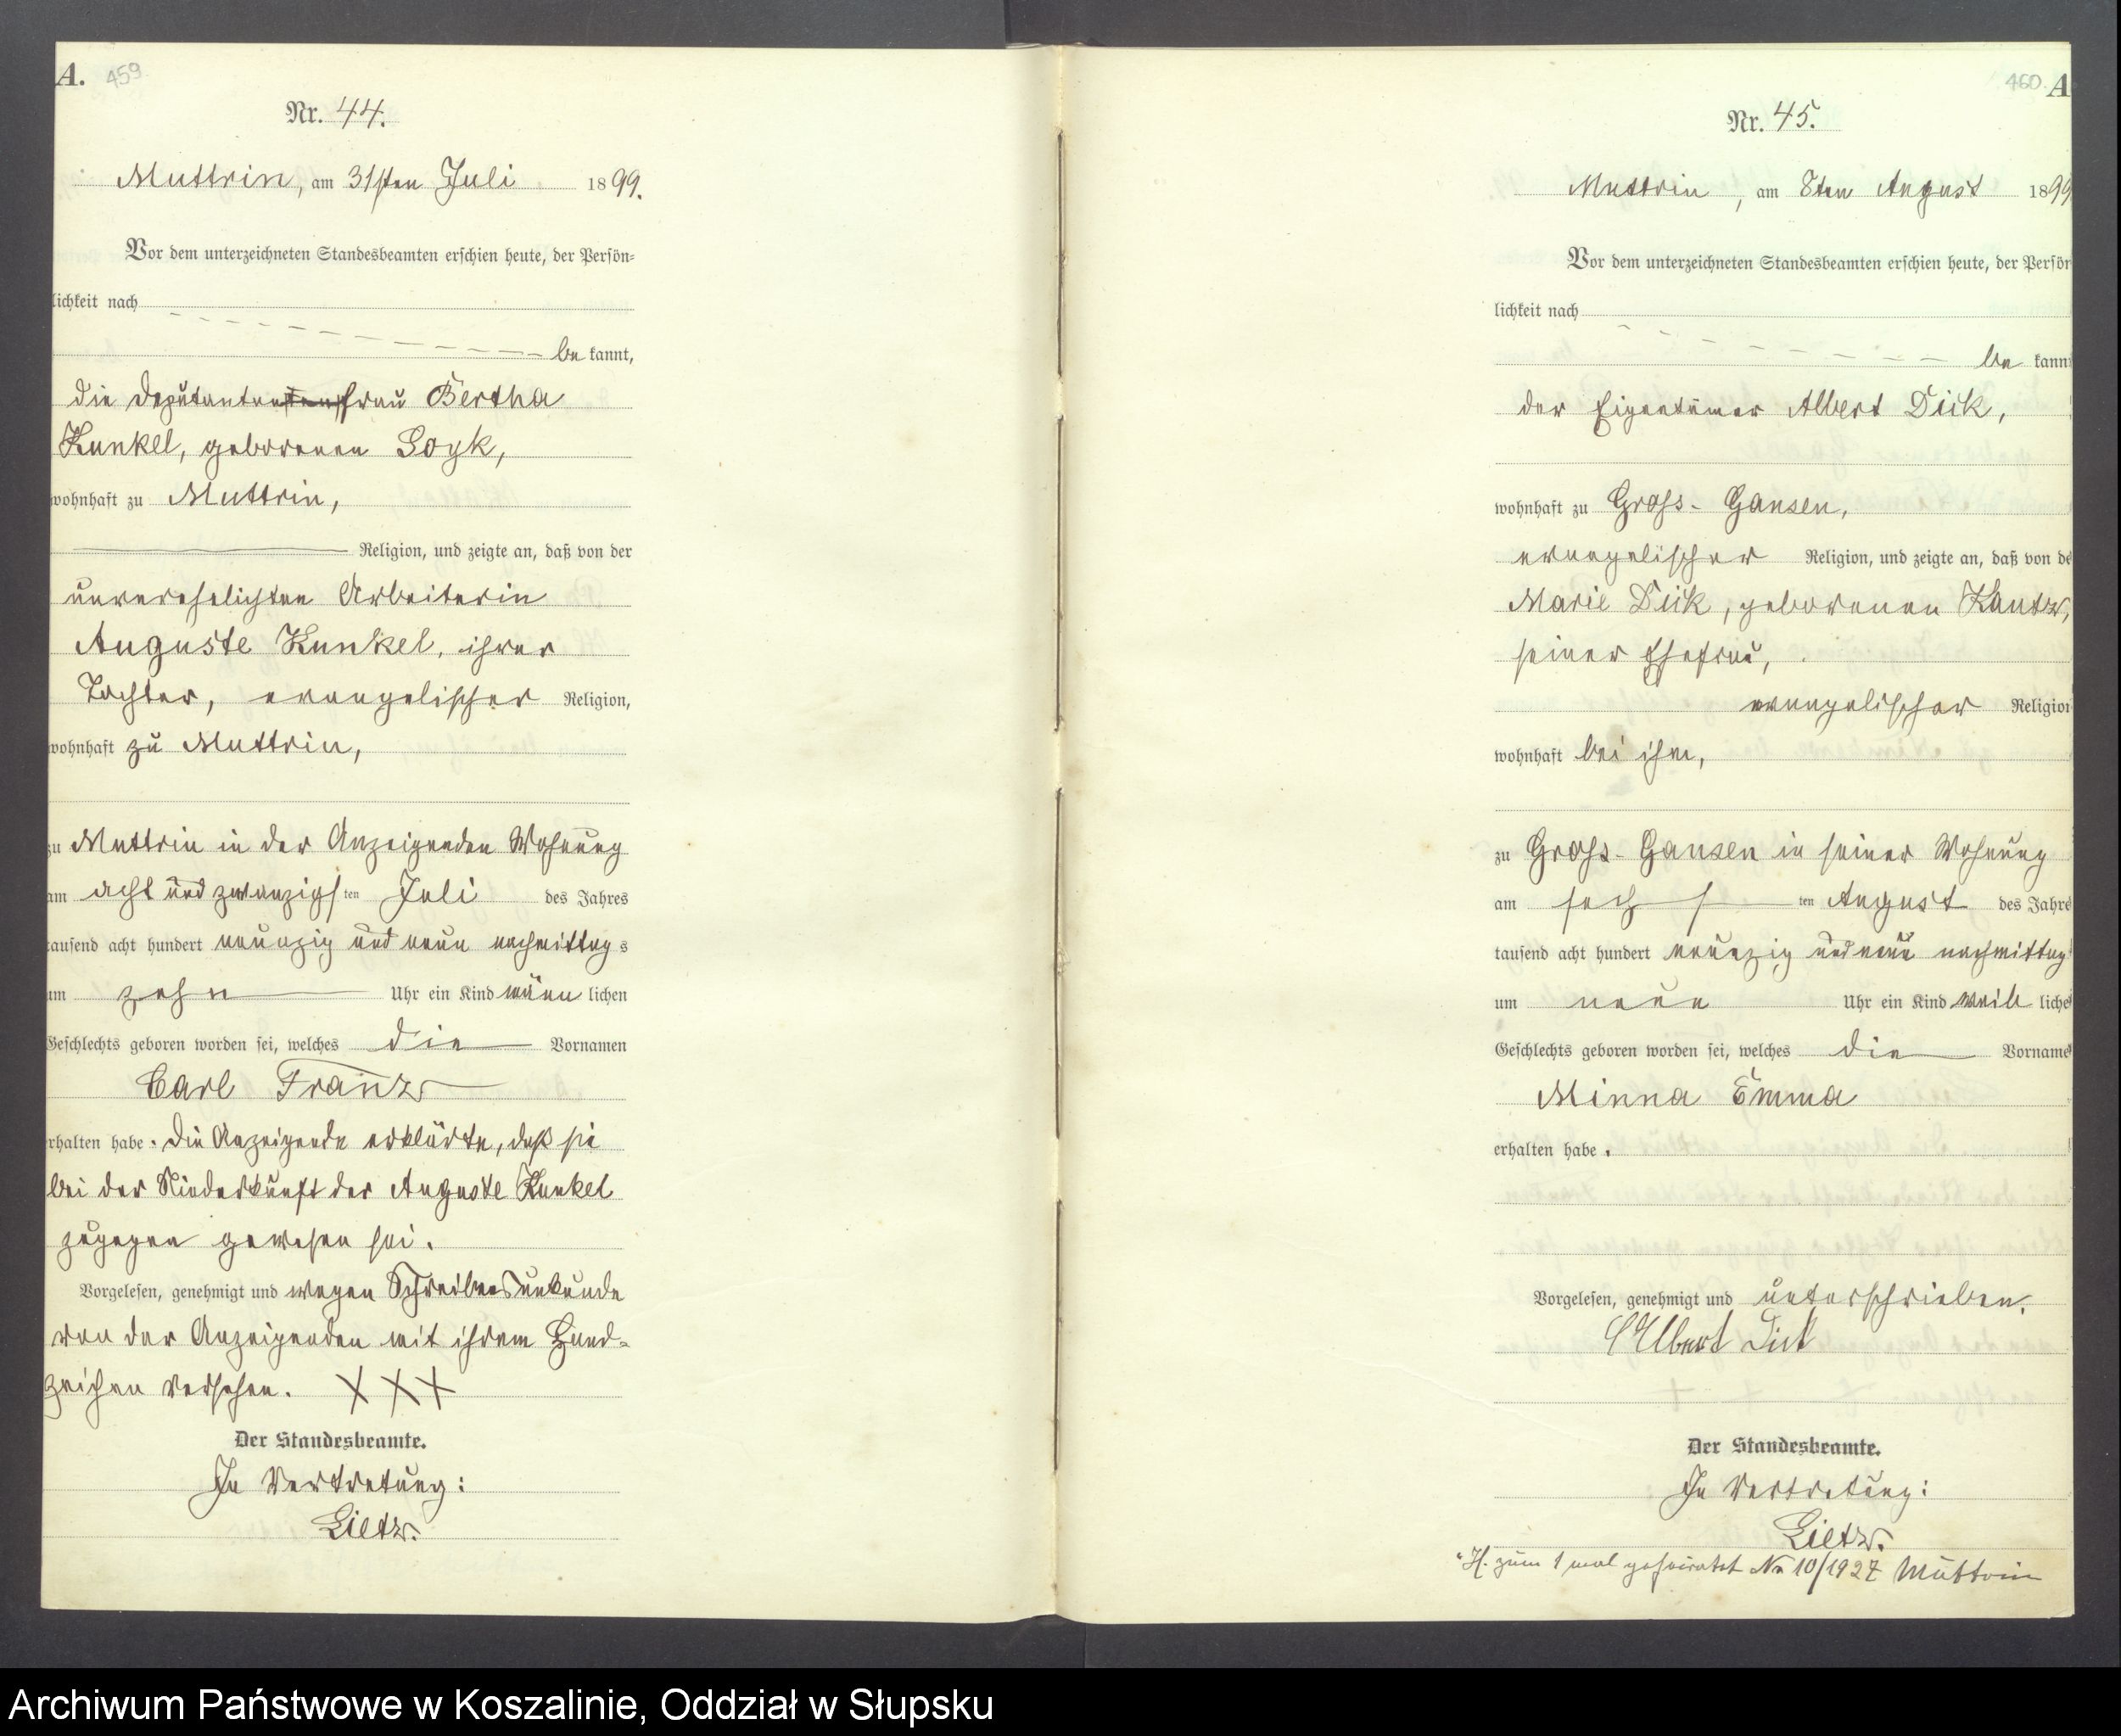 A. 459
Nr. 44.
Muttrin, am 31sten Juli 1899.
Vor dem unterzeichneten Standesbeamten erschien heute, der Persön-
lichkeit nach
be kannt,
die Deputantenfrau Bertha
Kunkel, geborenen Soyk,
wohnhaft zu Muttrin,
Religion, und zeigte an, daß von der
unverehelichten Arbeiterin
Auguste Kunkel, ihrer
Tochter, evangelischer Religion,
wohnhaft zu Muttrin,
zu Muttrin in der Anzeigenden Wohnung
am acht und zwanzigsten Juli des Jahres
tausend acht hundert neunzig und neun nachmittags
um zehn Uhr ein Kind männlichen
Geschlechts geboren worden sei, welches die Vornamen
Carl Franz
erhalten habe. Die Anzeigende erklärte, daß sie
bei der Niederkunft der Auguste Kunkel
zugegen gewesen sei.
Vorgelesen, genehmigt und wegen Schreibensunkunde
von der Anzeigenden mit ihrem Hand-
zeichen versehen. XXX
Der Standesbeamte.
In Vertretung:
Lietz.
460. A
Nr. 45.
Muttrin, am 8ten August 1899
Vor dem unterzeichneten Standesbeamten erschien heute, der Persön
lichkeit nach
be kannt
der Eigentümer Albert Dick,
wohnhaft zu Gross-Gansen,
evangelischer Religion, und zeigte an, daß von de
Marie Dick, geborenen Kautz,
seiner Ehefrau,
evangelischer Religion
wohnhaft bei ihm,
zu Gross-Gansen in seiner Wohnung
am sechsten August des Jahre
tausend acht hundert neunzig und neun nachmittag
um neun Uhr ein Kind weibliche
Geschlechts geboren worden sei, welches die Vorname
Minna Emma
erhalten habe.
Vorgelesen, genehmigt und unterschrieben.
Albert Dick
Der Standesbeamte.
In Vertretung:
Lietz.
H. zum 1 mal geheiratet Nr 10/1927 Muttrin
Archiwum Państwowe w Koszalinie, Oddział w Słupsku